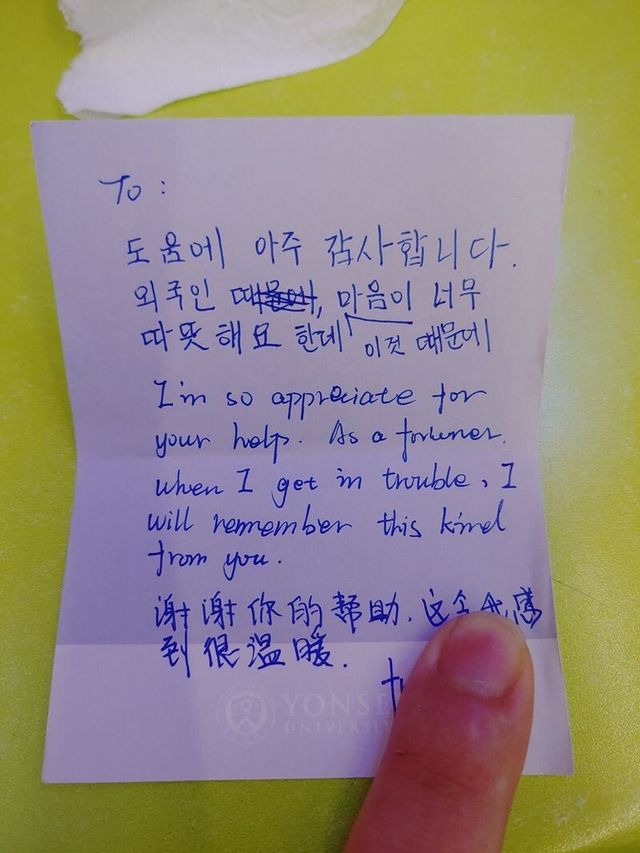 To :
도움에 아주 감사합니다.
외국인 마음이 너무
따뜻해요 한데 이것 때문에
I'm so appreciate for
your help. As a foriener.
when I get in trouble, I
will remember this kind
from you.
谢谢你的帮助. 这令我感
到很温暖.
YONSE
UNIVERSIT